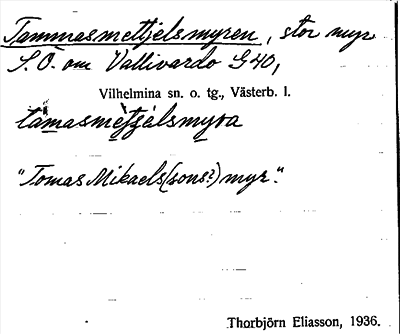 Tammasmettjelsmyren, stor myr
S.Ö. om Vallivardo G40,
Vilhelmina sn. o. tg., Västerb. l.
tàmasmet̀jelsmyra
"Tomas Mikaels(sons?) myr."
Thorbjörn Eliasson, 1936.